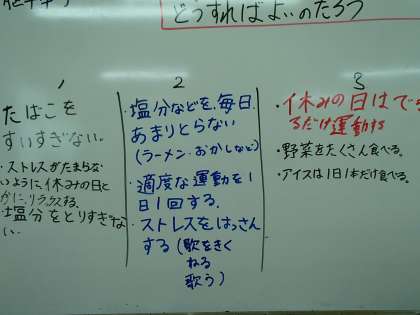 どうすればよいのだろう
1
たばこを
すいすぎない。
・ストレスがたまらな
いように休みの日と
かに、リラックスする。
・塩分をとりすぎな
い.
2
・塩分などを、毎日、
あまりとらない
(ラーメン・おかしなど)
・適度な運動を1
日1回する.
・ストレスをはっさん
する(歌をきく
ねる
歌う)
3
・休みの日はでき
るだけ運動する
・野菜をたくさん食べる。
・アイスは1日1本だけ食べる。